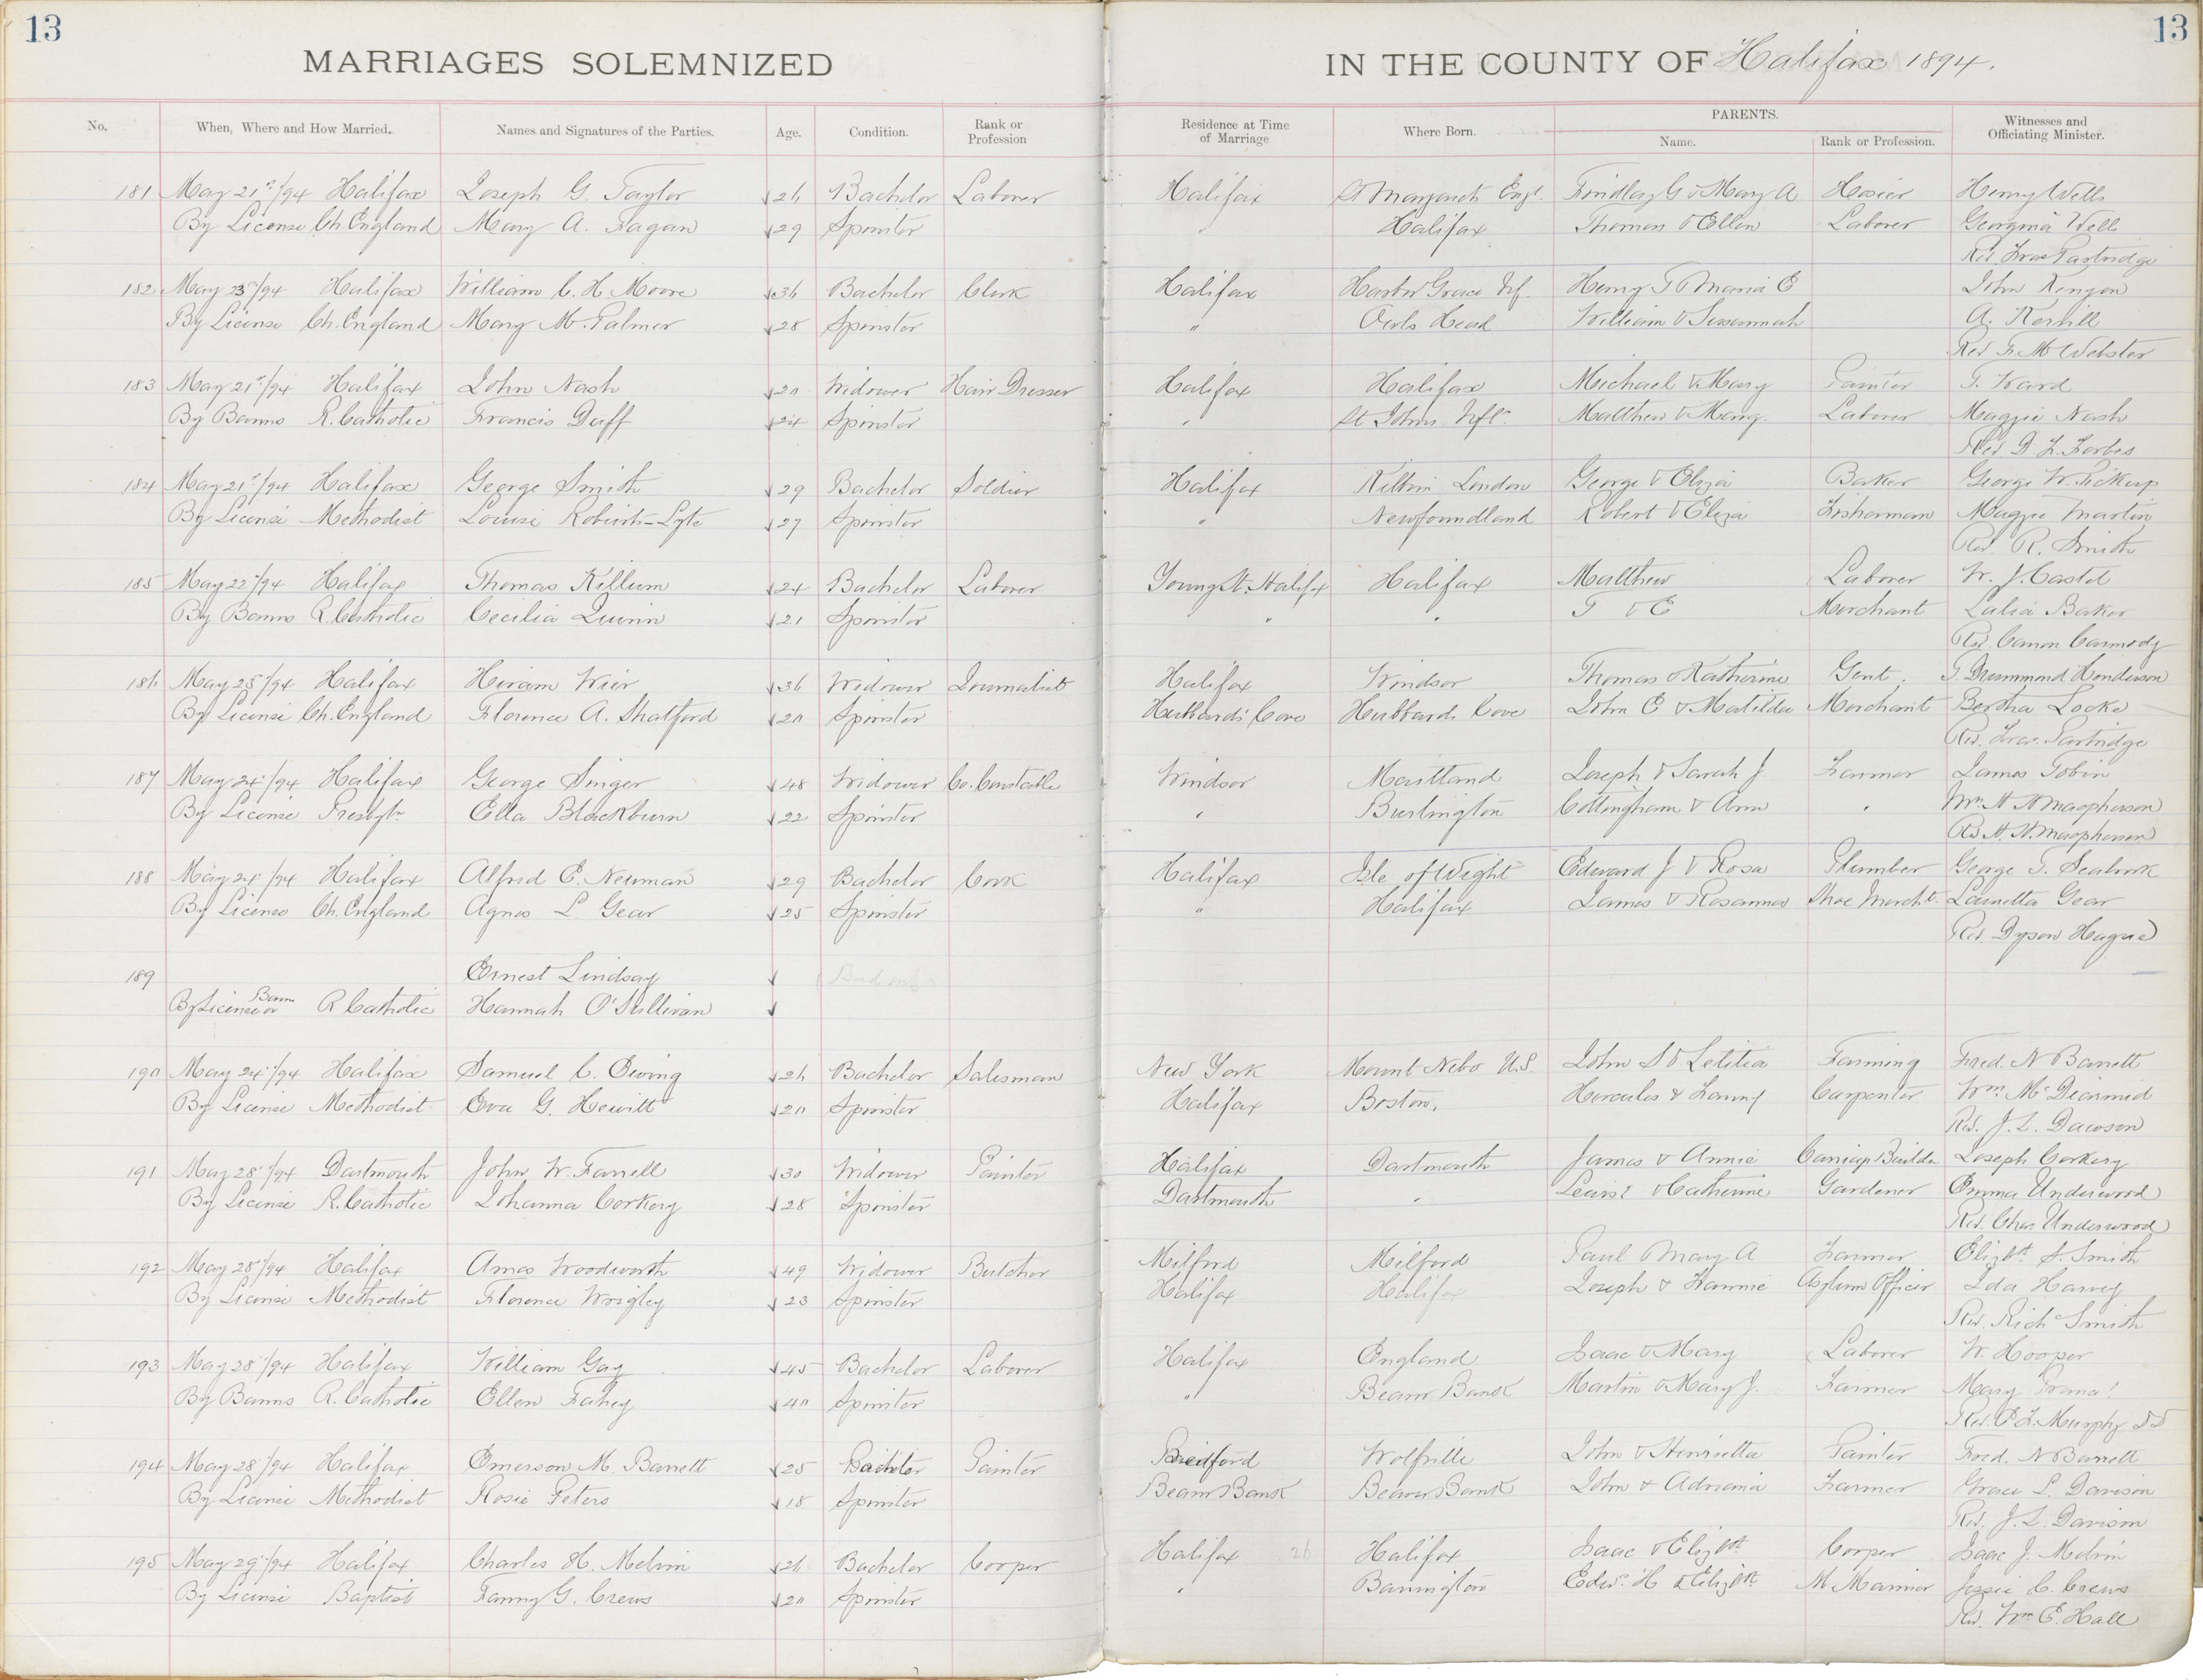 13
13
MARRIAGES SOLEMNIZED IN THE COUNTY OF Halifax 1894.
No. When, Where and How Married. Names and Signatures of the Parties. Age. Condition. Rank or Profession Residence at Time of Marriage Where Born. PARENTS. Name. Rank or Profession. Witnesses and Officiating Minister.
181 May 21st/94 Halifax Joseph G. Taylor 26 Bachelor Laborer Halifax St Margarets Engl. Findlay G & Mary A Hosier Henry Wells
By License Ch. England Mary A. Fagan 29 Spinster " Halifax Thomas & Ellen Laborer Georgina Well
Rev. Fras Partridge
182 May 23/94 Halifax William C. H. Moore 36 Bachelor Clerk Halifax Harbor Grace Nf. Henry T & Maria E John Kenyon
By License Ch. England Mary M. Palmer 28 Spinster " Owls Head William & Susannah A.
Rev F. M Webster
183 May 21st/94 Halifax John Nash 20 Widower Hair Dresser Halifax Halifax Michael & Mary Painter T. Ward
By Banns R. Catholic Francis Duff 24 Spinster " St Johns Nfl. Matthew & Mary. Laborer Maggie Nash
Rev D L. Forbes
184 May 21st/94 Halifax George Smith 29 Bachelor Soldier Halifax London George & Eliza Baker George W. Pickup
By License Methodist Louisa Roberts-Lyte 27 Spinster " Newfoundland Robert & Eliza Fisherman Maggie Martin
Rev. R. Smith
185 May 22/94 Halifax Thomas Killum 24 Bachelor Laborer Young St. Halifx Halifax Matthew Laborer W. J. Castel
By Banns R. Catholic Cecilia Quinn 21 Spinster " " T & E Merchant Lalia Baker
Rev. Canon Carmody
186 May 23/94 Halifax Hiram Wier 36 Widower Journalist Halifax Windsor Thomas & Katherine Gent. T. Drummond Henderson
By License Ch. England Florence A. Shatford 20 Spinster Hubbards Cove Hubbards Cove John E & Matilda Merchant Bertha Locke
Rev. Fras. Partridge
187 May 24/94 Halifax George Singer 48 Widower Co. Constable Windsor Maitland Joseph & Sarah J. Farmer James Tobin
By License Presbytn. Ella Blackburn 22 Spinster " Burlington Cottingham & Ann " Mrs. H. H. Macpherson
Rev H. H. Macpherson
188 May 24/94 Halifax Alfred E. Newman 29 Bachelor Cook Halifax Isle of Wight Edward J & Rosa Plumber George T. Seabrook
By License Ch. England Agnes L. Gear 25 Spinster " Halifax James & Rosanna Shoe Mercht. Lauretta Gear
Rev. Dyson Hague
189 Ernest Lindsay
By License or Banns R Catholic Hannah O'Sullivan
190 May 24/94 Halifax Samuel C. Ewing 26 Bachelor Salesman New York Mount Nebo U.S. John S & Letitia Farming Fred. N Barrett
By License Methodist Eva G. Hewitt 20 Spinster Halifax Boston. Hercules & Fanny Carpenter Wm. McDiarmid
Rev. J. L. Dawson
191 May 28/94 Dartmouth John W. Farrell 30 Widower Painter Halifax Dartmouth James & Annie Carriage Builder Joseph Corkery
By License R. Catholic Johanna Corkery 28 Spinster Dartmouth " Lewis & Catherine Gardener Emma Underwood
Rev. Chas Underwood
192 May 28/94 Halifax Amos Woodworth 49 Widower Butcher Milford Milford Paul Mary A Farmer Elizbth S. Smith
By License Methodist Florence Wrigley 23 Spinster Halifax Halifax Joseph & Fannie Asylum Officer Ida Harvey
Rev. Rich Smith
193 May 28/94 Halifax William Gay 45 Bachelor Laborer Halifax England Isaac & Mary Laborer W. Hooper
By Banns R. Catholic Ellen Fahey 40 Spinster " Beaver Bank Martin & Mary J. Farmer Mary
Rev. E. F. Murphy DD
194 May 28/94 Halifax Emerson M. Barrett 25 Bachelor Painter Bedford Wolfville John & Henrietta Painter Fred. N Barrett
By License Methodist Rosie Peters 18 Spinster Beaver Bank Beaver Bank John & Adriania Farmer Grace L. Davison
Rev. J. L. Davison
195 May 29/94 Halifax Charles H. Melvin 26 Bachelor Cooper Halifax 26 Halifax Isaac & Elizbth Cooper Isaac J. Melvin
By License Baptist Fanny G. Crews 20 Spinster " Barrington Edwd. H & Elizbth M. Mariner Jessie C. Crews
Rev. Wm E. Hall